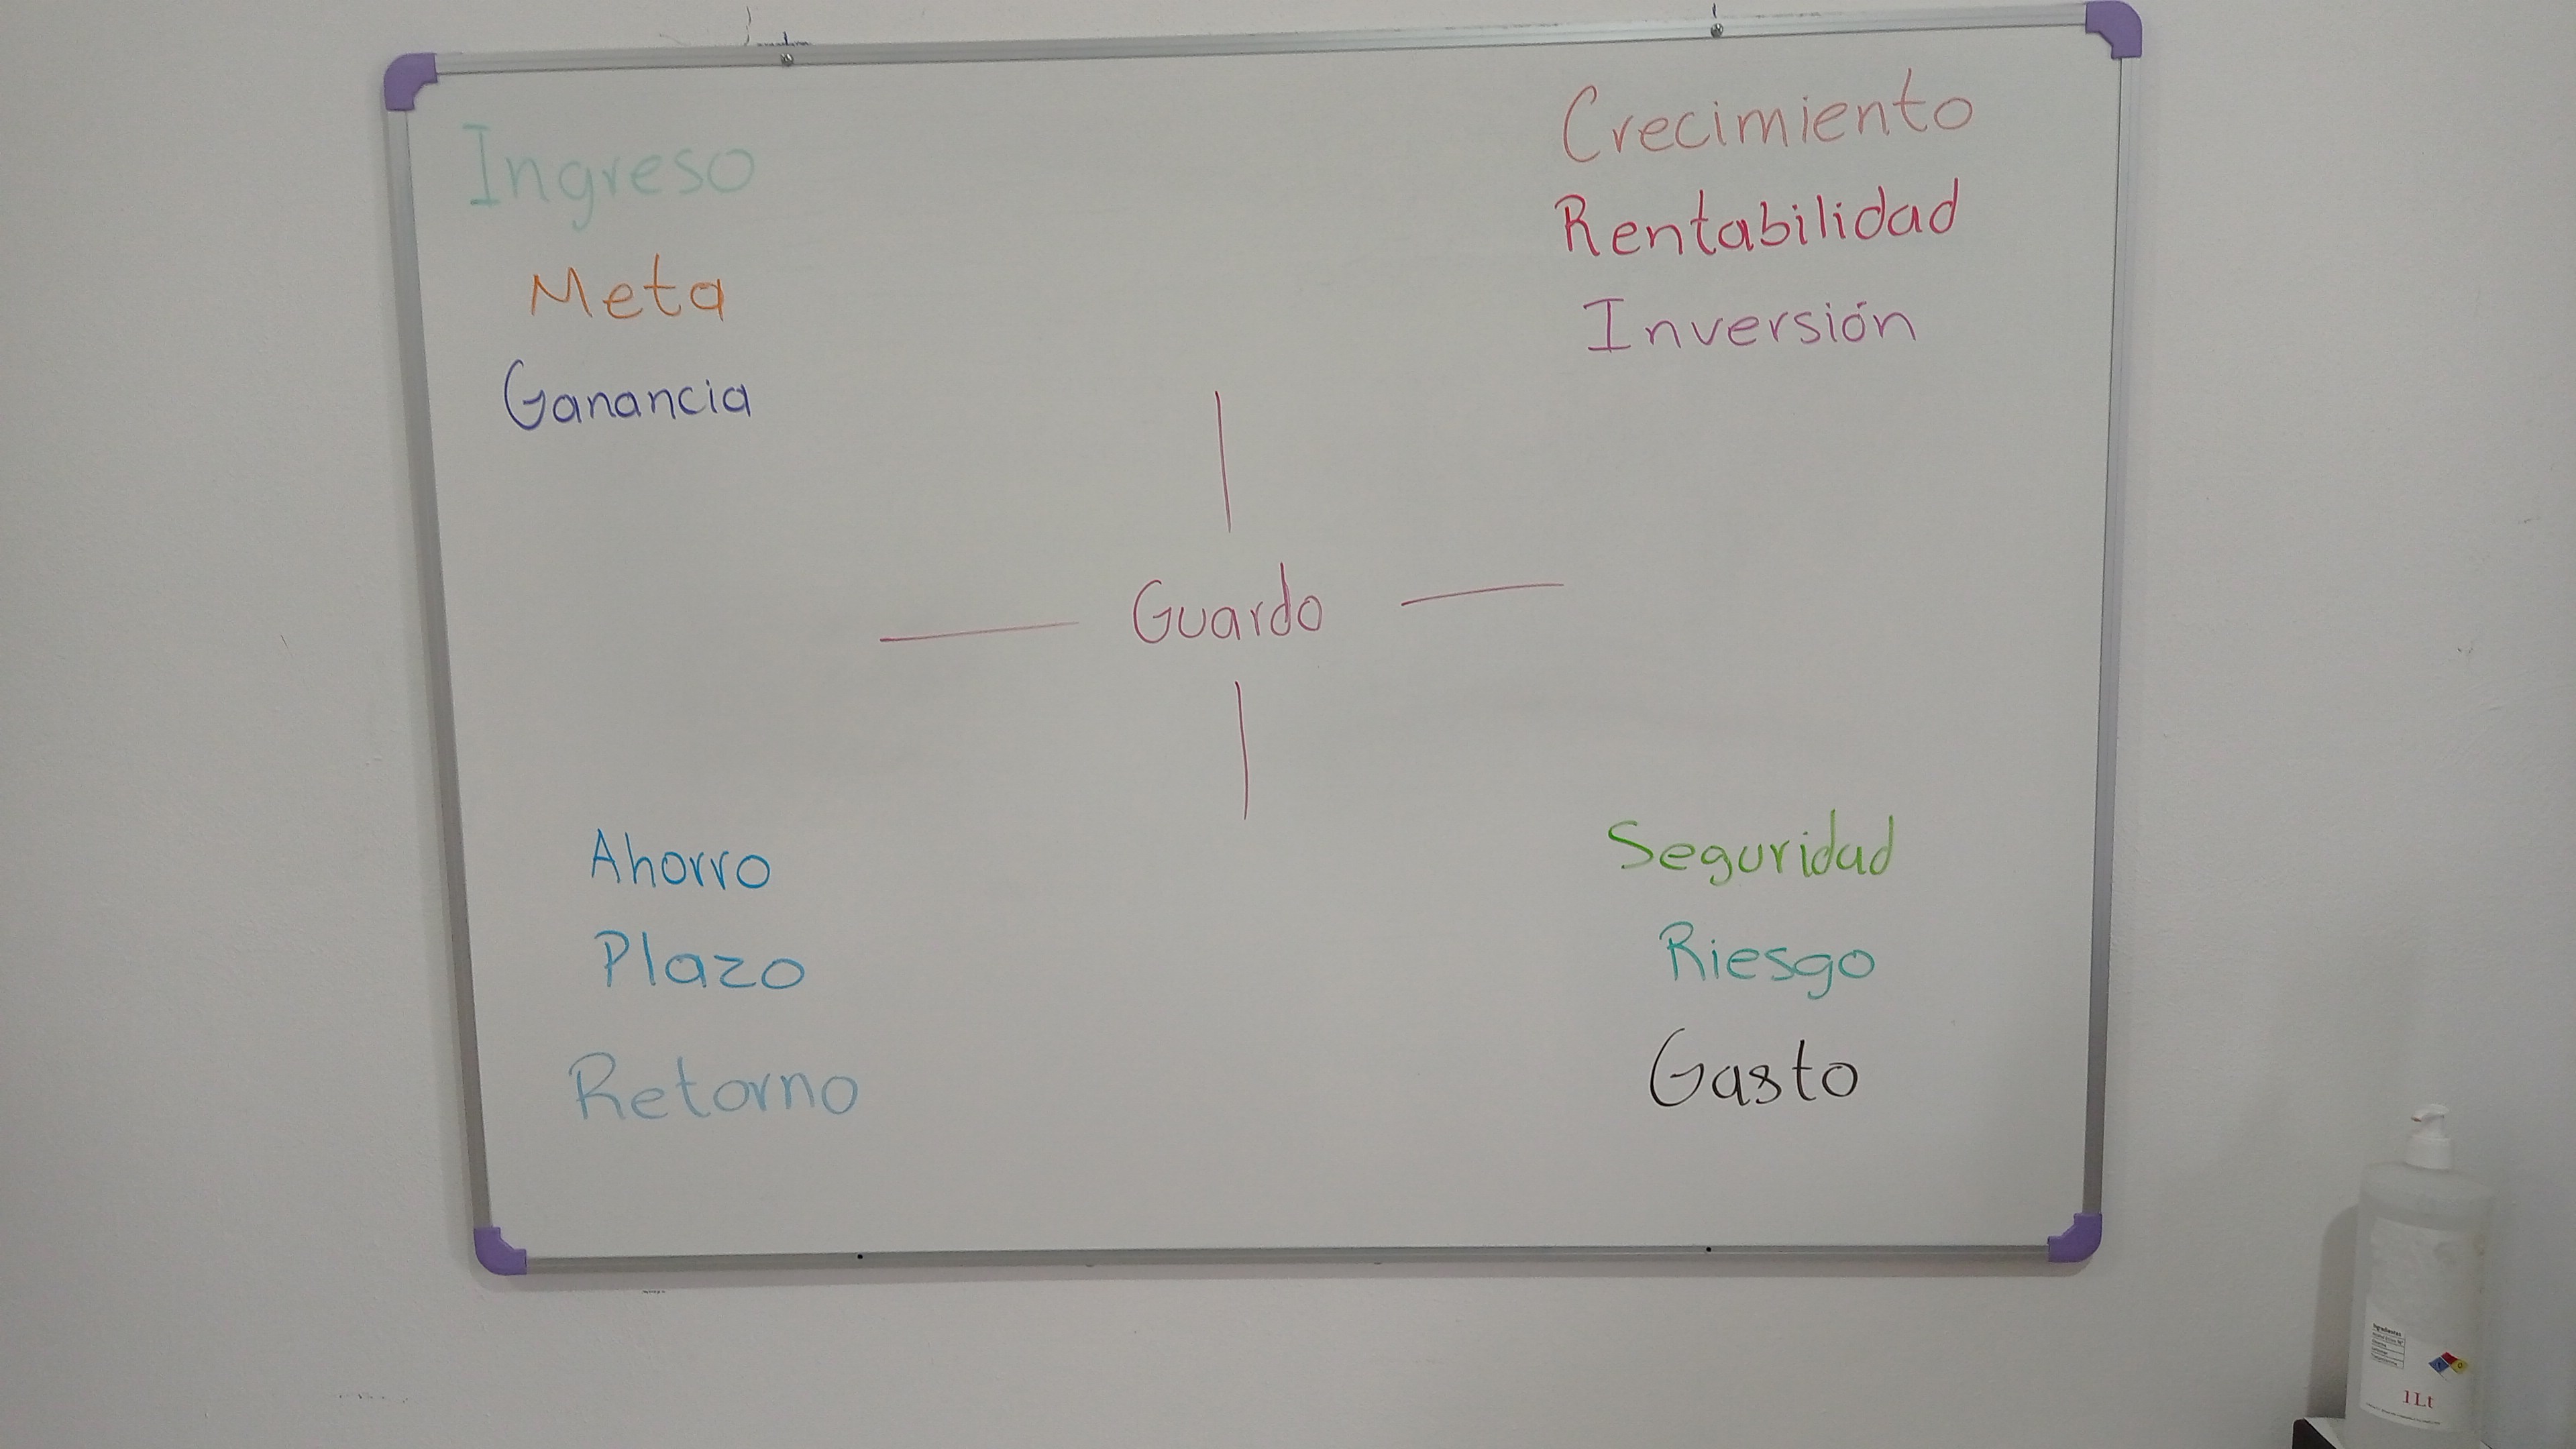 Ingreso
Meta
Ganancia
Crecimiento
Rentabilidad
Inversión
Guardo
Ahorro
Plazo
Retorno
Seguridad
Riesgo
Gasto
Ingredientes
1Lt